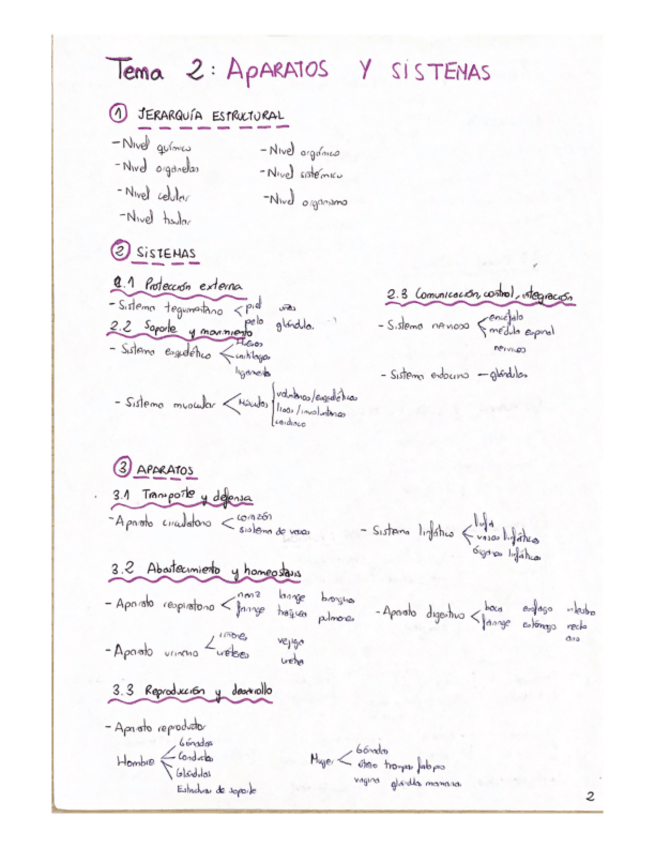 Tema 2: APARATOS Y SISTEMAS
1 JERARQUÍA ESTRUCTURAL
- Nivel químico
- Nivel organelas
- Nivel celular
- Nivel tisular
- Nivel orgánico
- Nivel sistémico
- Nivel organismo
2 SISTEMAS
2.1 Protección externa
- Sistema tegumentario < piel uñas
pelo glándula
2.2 Soporte y movimiento
- Sistema esquelético < Huesos
cartílagos
ligamento
- Sistema muscular < Músculos voluntarios/esqueléticos
lisos/involuntarios
cardiaco
2.3 Comunicación, control, integración
- Sistema nervioso < encéfalo
médula espinal
nervios
- Sistema endocrino - glándulas
3 APARATOS
3.1 Transporte y defensa
- Aparato circulatorio < corazón
sistema de vasos
- Sistema linfático < linfa
vasos linfáticos
órganos linfáticos
3.2 Abastecimiento y homeostasis
- Aparato respiratorio < nariz laringe bronquios
faringe tráquea pulmones
- Aparato digestivo < boca esófago intestino
faringe estómago recto
ano
- Aparato urinario < riñones vejiga
uréteres uretra
3.3 Reproducción y desarrollo
- Aparato reproductor
Hombre < Gónadas
Conductos
Glándulas
Estructuras de soporte
Mujer < Gónadas
útero trompas falopio
vagina glándula mamaria
2